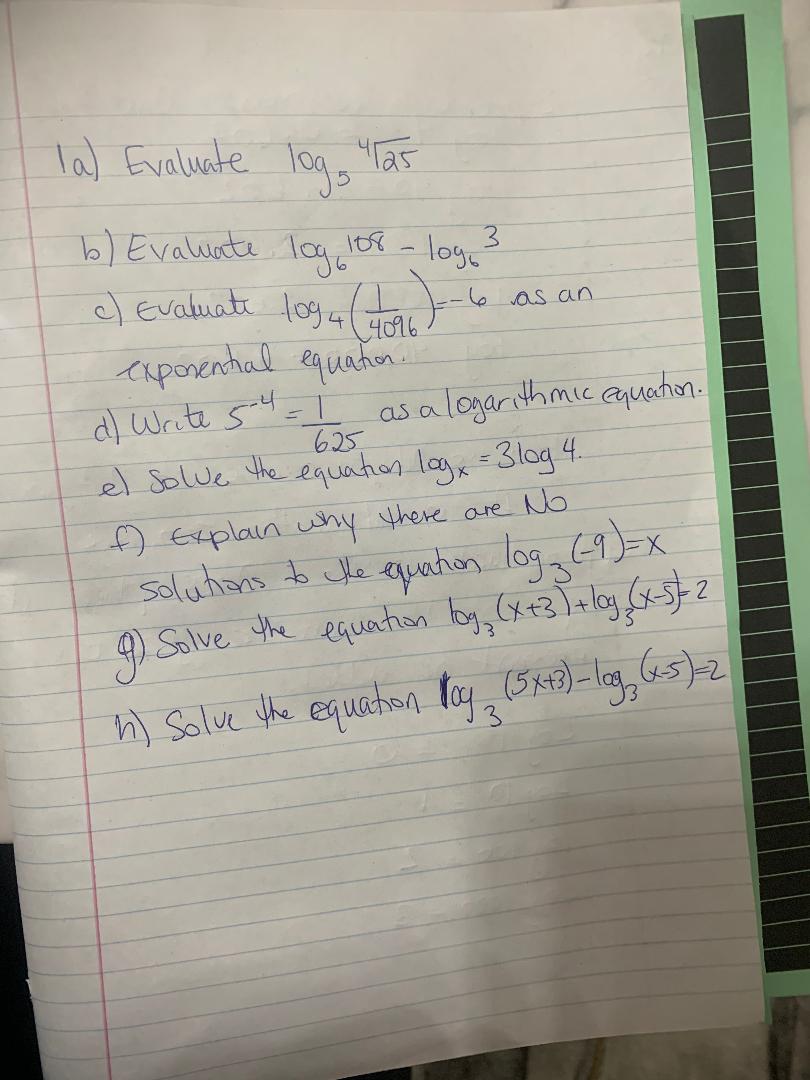 1a) Evaluate log₅ ⁴√25
b) Evaluate log₆108 - log₆3
c) Evaluate log₄(1/4096)=-6 as an
exponential equation.
d) Write 5⁻⁴ = 1/625 as a logarithmic equation.
e) Solve the equation logₓ = 3log 4.
f) Explain why there are No
solutions to the equation log₃(-9)=x
g) Solve the equation log₃(x+3)+log₃(x-5)=2
h) Solve the equation log₃(5x+3)-log₃(x-5)=2